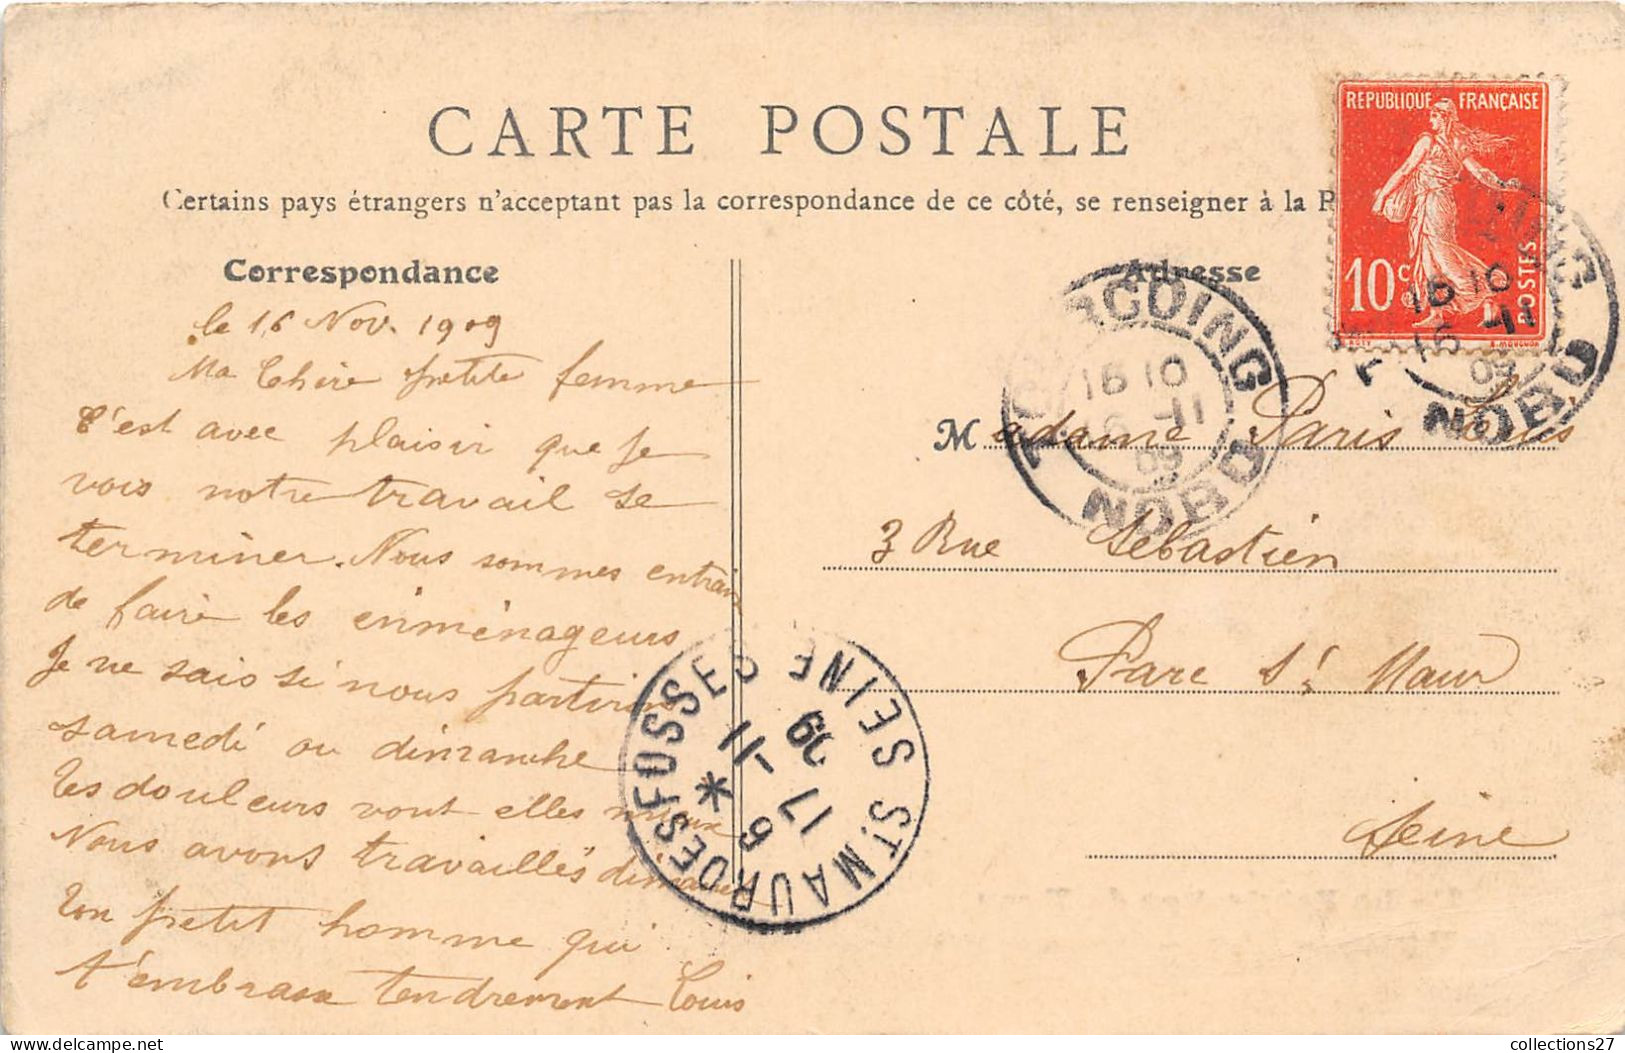 CARTE POSTALE
Certains pays étrangers n'acceptent pas la correspondance de ce côté, se renseigner à la P
Correspondance
le 16 Nov. 1909
Ma Chère petite femme
C'est avec plaisir que je
vois notre travail se
terminer. Nous sommes entrain
de faire les enménageurs
Je ne sais si nous partirons
samedi ou dimanche
tes douleurs vont elles mieux
Nous avons travaillés dimanche
Ton petit homme qui
t'embrasse tendrement Louis
Adresse
Madame Paris Louis
3 Rue Sébastien
Parc St Maur
Seine
REPUBLIQUE FRANÇAISE
10c
POSTES
O. ROTY
E. MOUCHON
TOURCOING
16 10
16 -11
09
NORD
TOURCOING
16 10
16 -11
09
NORD
ST MAUR DES FOSSES SEINE
6
17 -11
09
collections27